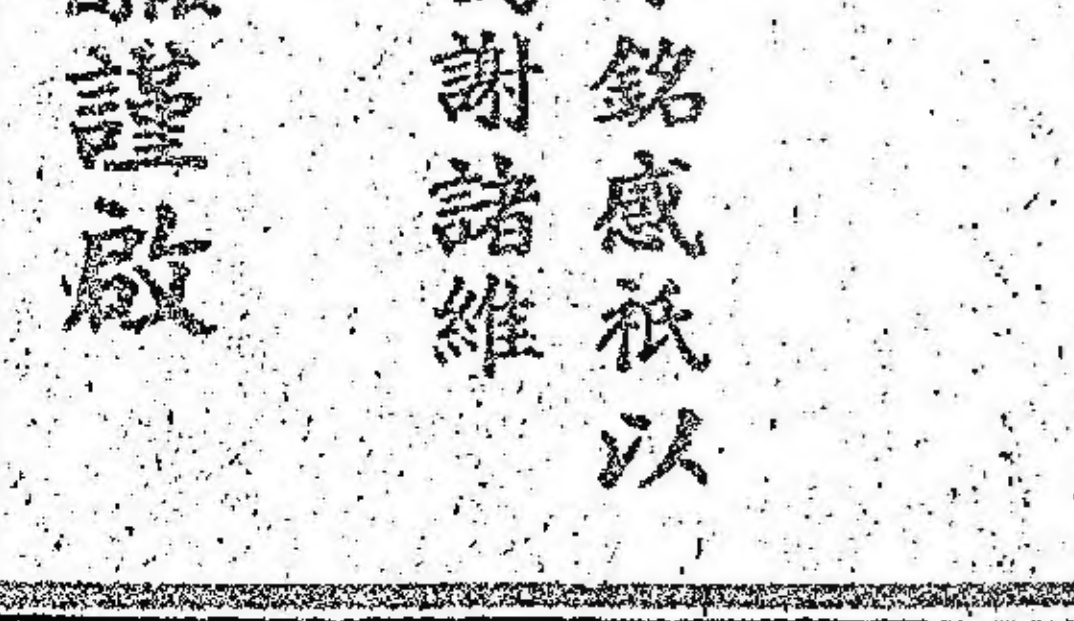 銘感祇以
謝諸維
謹啟